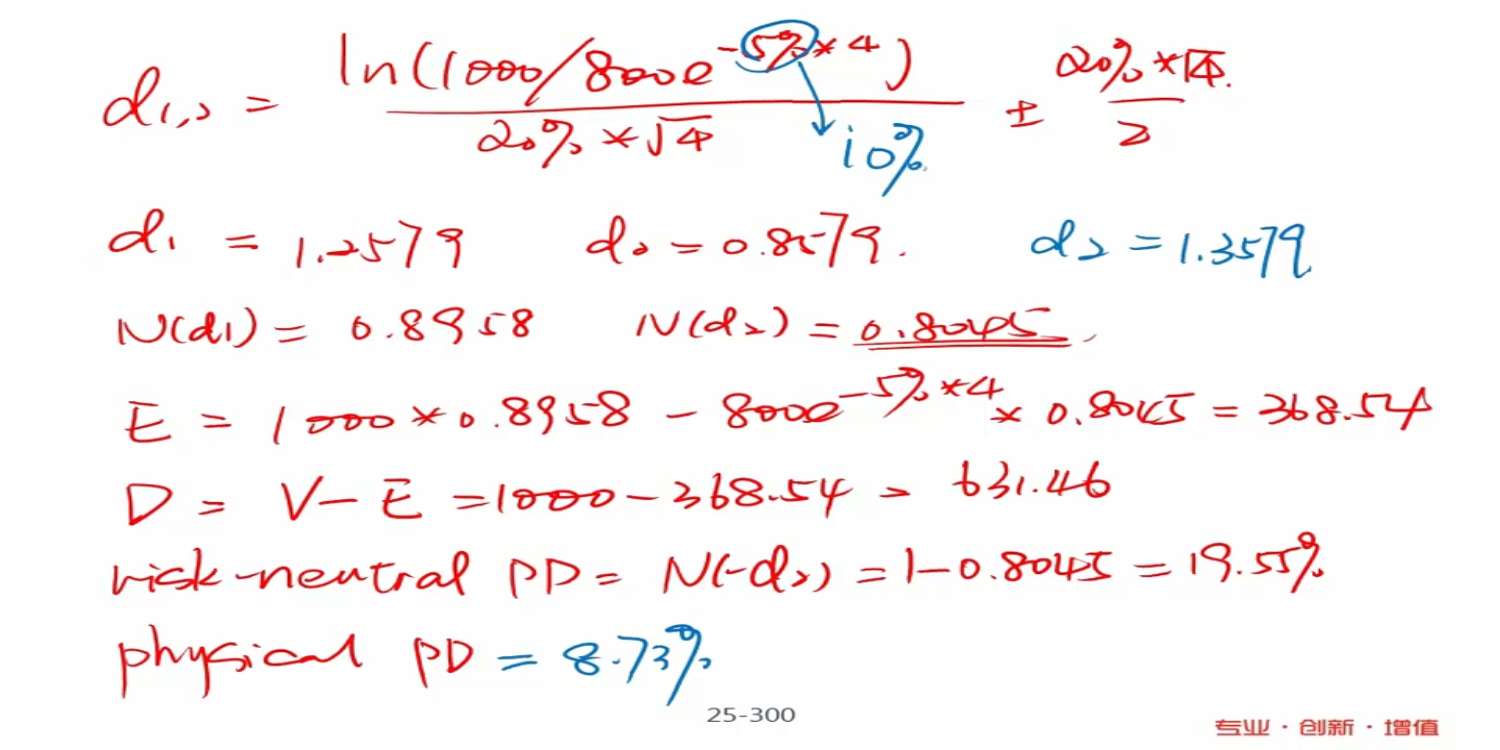 d₁,₂ = ln(1000/800e^(-5%*4)) / (20%*√4) ± 20%*√4 / 2
10%
d₁ = 1.2579 d₂ = 0.8579. d₂ = 1.3579
N(d₁) = 0.8958 N(d₂) = 0.8045,
E = 1000*0.8958 - 800e^(-5%*4) * 0.8045 = 368.54
D = V-E = 1000-368.54 = 631.46
risk-neutral PD = N(-d₂) = 1-0.8045 = 19.55%
physical PD = 8.73%
25-300
专业·创新·增值